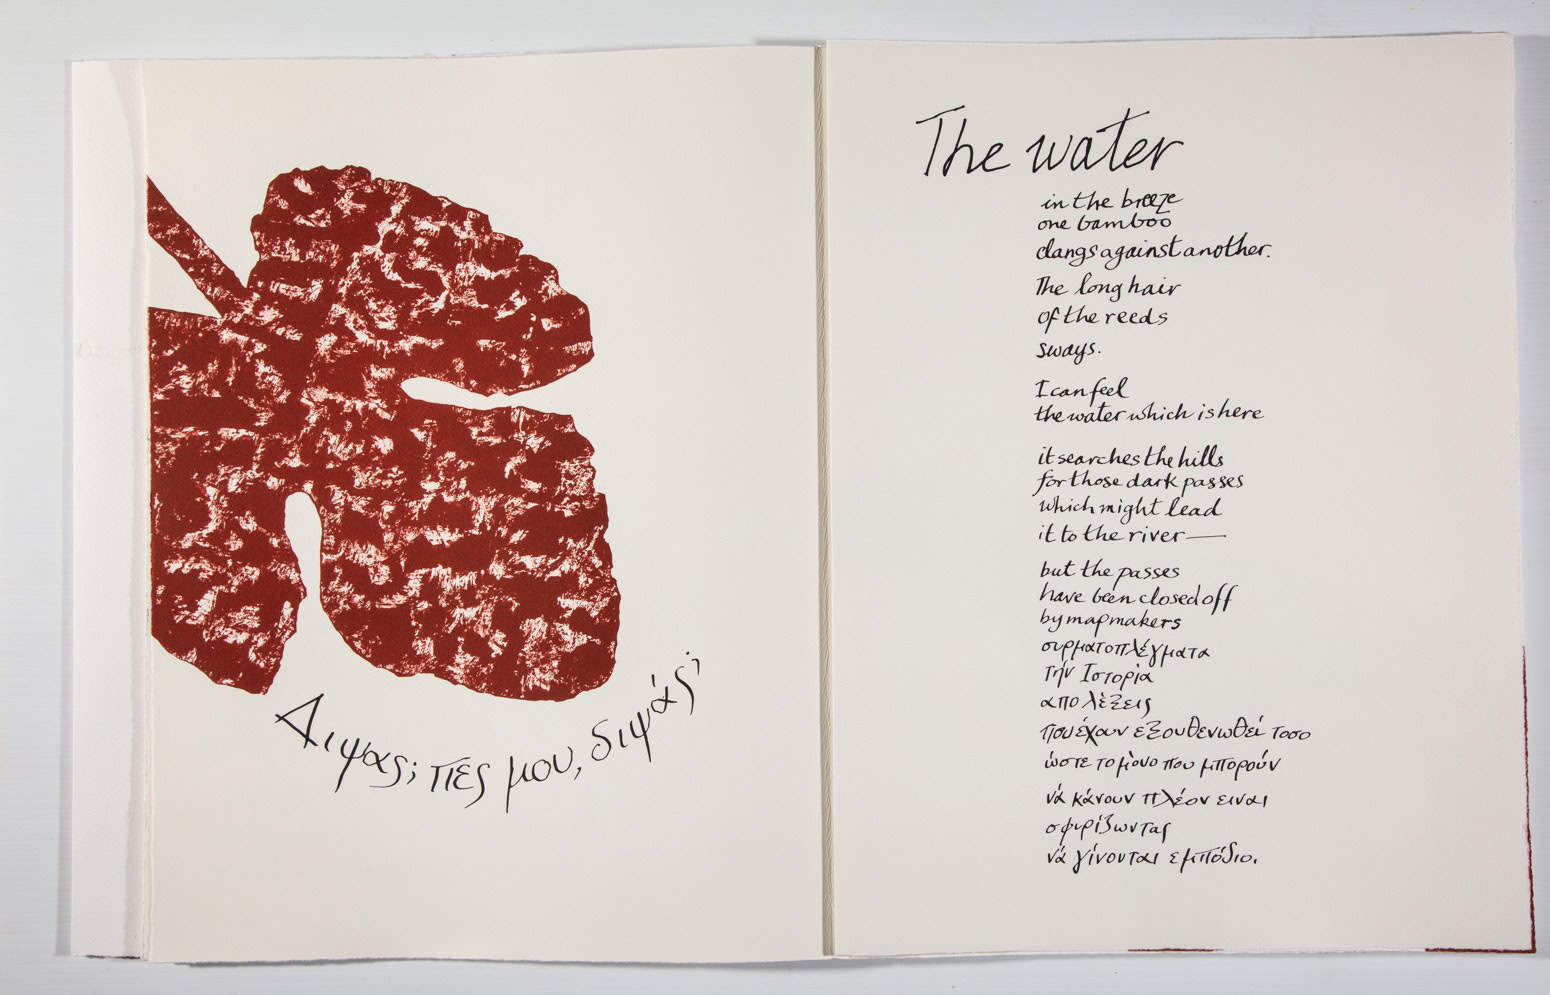 Διψας; πες μου, διψάς;
The water
in the breeze
one bamboo
clangs against another.
The long hair
of the reeds
sways.
I can feel
the water which is here
it searches the hills
for those dark passes
which might lead
it to the river—
but the passes
have been closed off
by mapmakers
συρματοπλέγματα
τήν Ιστορία
απο λέξεις
που έχουν εξουθενωθεί τοσο
ώστε το μόνο που μπορούν
νά κάνουν πλέον ειναι
σφυρίζωντας
νά γίνονται εμπόδιο.